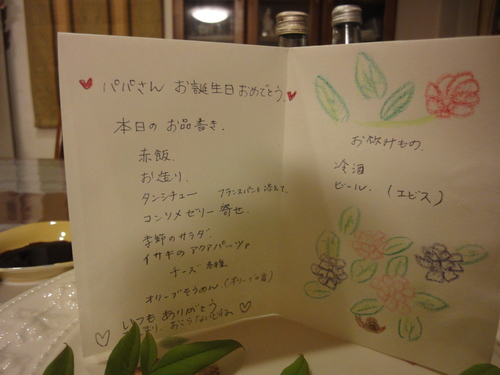 パパさん お誕生日おめでとう。
本日の お品書き。
赤飯
お造り
タンシチュー フランスパンを添えて
コンソメゼリー寄せ
季節のサラダ
イサキのアクアパッツァ
チーズ
オリーブそうめん
いつもありがとう
お飲みもの
冷酒
ビール (エビス)